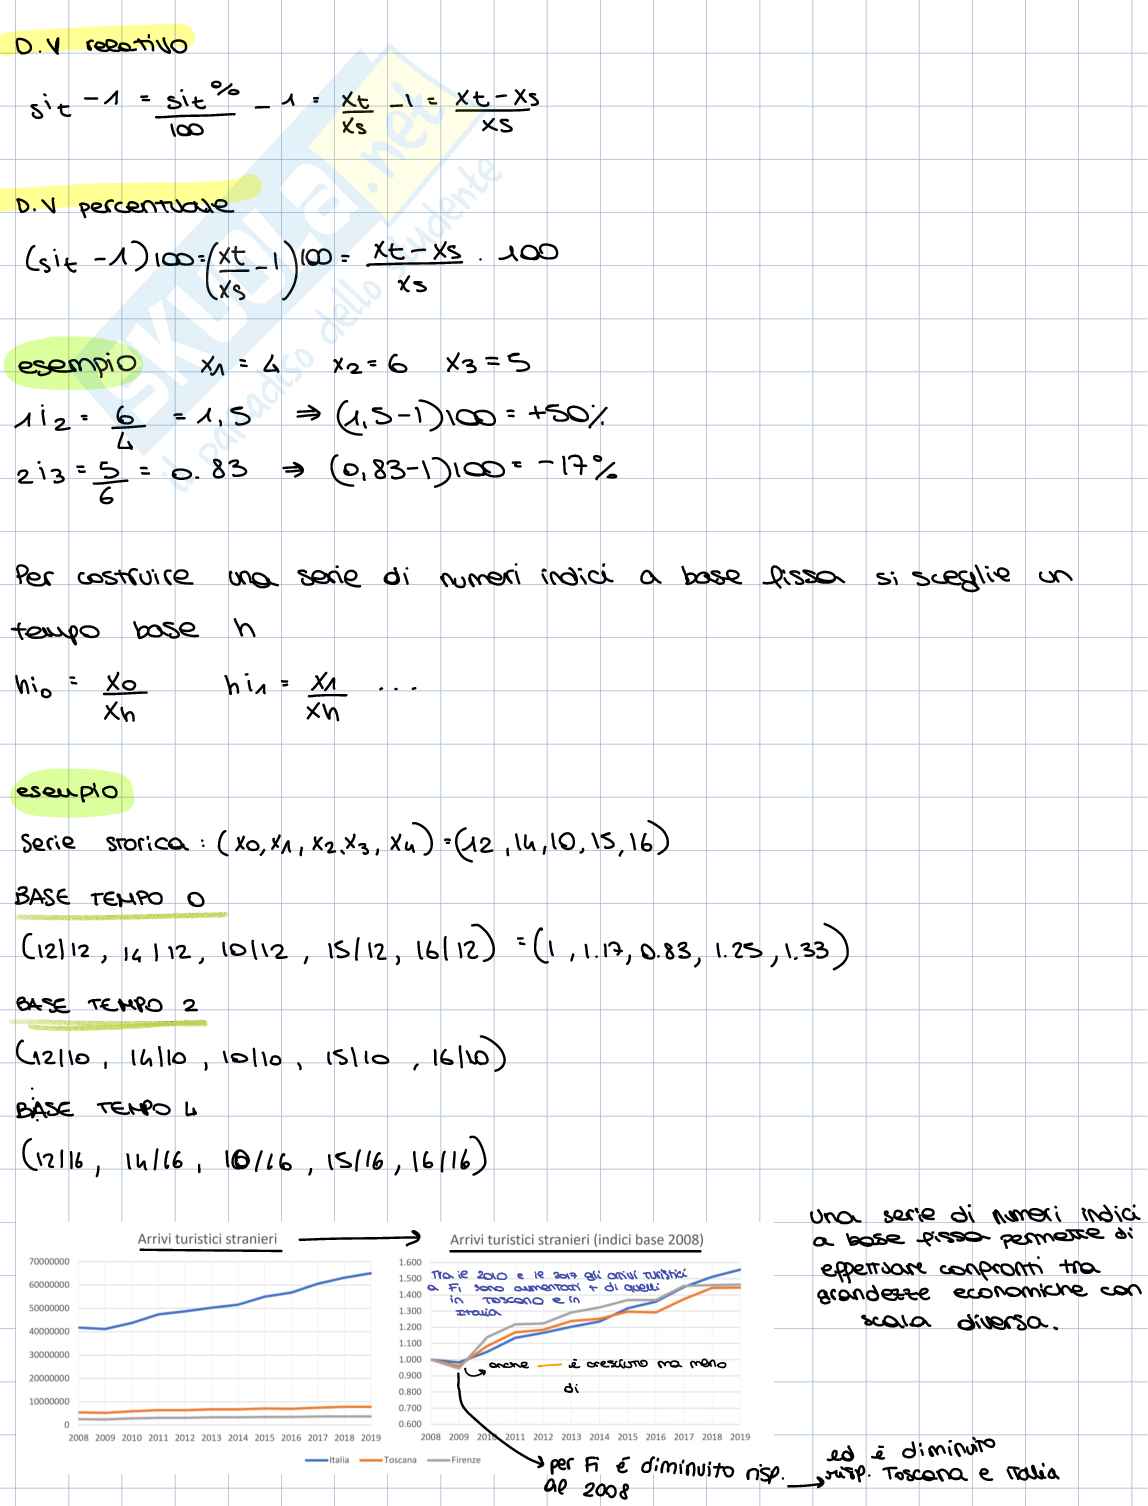 D.V relativo
sit -1 = sit% / 100 - 1 = xt / xs - 1 = xt - xs / xs
D.V percentuale
(sit -1)100 = (xt / xs - 1)100 = xt - xs / xs · 100
esempio x1 = 4 x2 = 6 x3 = 5
1i2 = 6/4 = 1,5 ⇒ (1,5-1)100 = +50%
2i3 = 5/6 = 0.83 ⇒ (0,83-1)100 = -17%
Per costruire una serie di numeri indici a base fissa si sceglie un
tempo base h
hi0 = x0 / xh hi1 = x1 / xh ...
esempio
Serie storica : (x0, x1, x2, x3, x4) = (12, 14, 10, 15, 16)
BASE TEMPO 0
(12/12, 14/12, 10/12, 15/12, 16/12) = (1, 1.17, 0.83, 1.25, 1.33)
BASE TEMPO 2
(12/10, 14/10, 10/10, 15/10, 16/10)
BASE TEMPO 4
(12/16, 14/16, 10/16, 15/16, 16/16)
Arrivi turistici stranieri
70000000
60000000
50000000
40000000
30000000
20000000
10000000
0
2008 2009 2010 2011 2012 2013 2014 2015 2016 2017 2018 2019
Arrivi turistici stranieri (indici base 2008)
1.600
1.500
1.400
1.300
1.200
1.100
1.000
0.900
0.800
0.700
0.600
2008 2009 2010 2011 2012 2013 2014 2015 2016 2017 2018 2019
Tra le 2010 e le 2017 gli arrivi turistici
a Fi sono aumentati + di quelli
in Toscana e in
Italia
anche è cresciuto ma meno
di
Italia Toscana Firenze
per Fi è diminuito risp.
al 2008
ed è diminuito
risp. Toscana e Italia
una serie di numeri indici
a base fissa permette di
effettuare confronti tra
grandezze economiche con
scala diversa.
SKUOLA.net
il paradiso dello studente